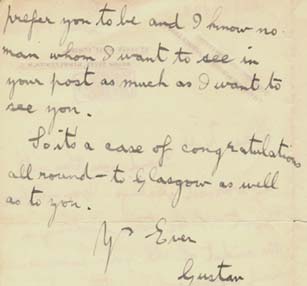 prefer you to be and I know no
man whom I want to see in
your post as much as I want to
see you.
So its a case of congratulations
all round - to Glasgow as well
as to you.
Yrs Ever
Gustav